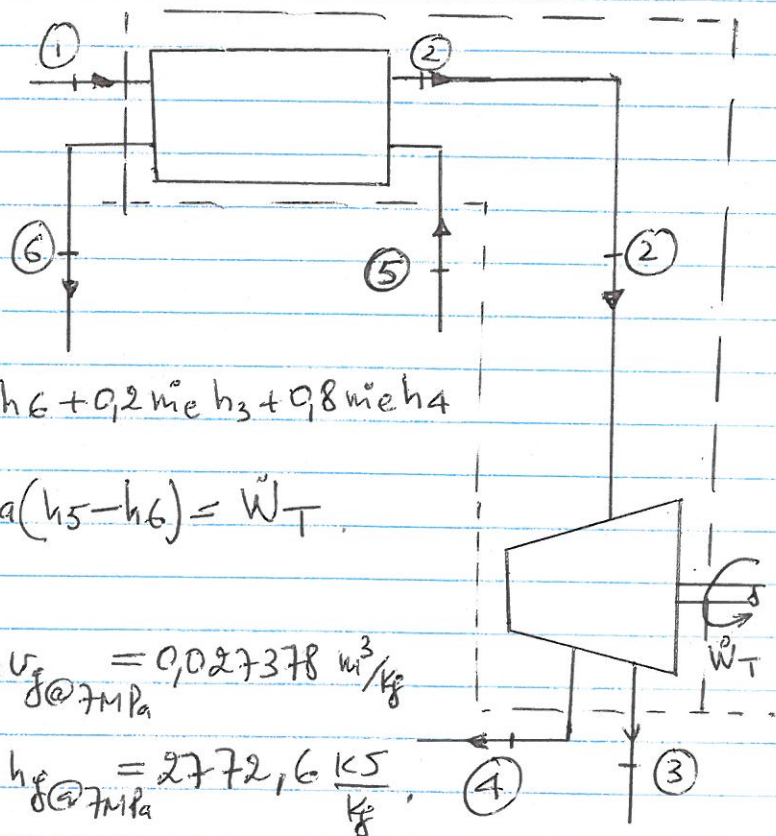 ① ②
⑥ ⑤ ②
h6 + 0,2 ṁe h3 + 0,8 ṁe h4
a(h5 - h6) = ẆT.
vg@7MPa = 0,027378 m³/kg
ẆT
hg@7MPa = 2772,6 kJ/kg.
④ ③